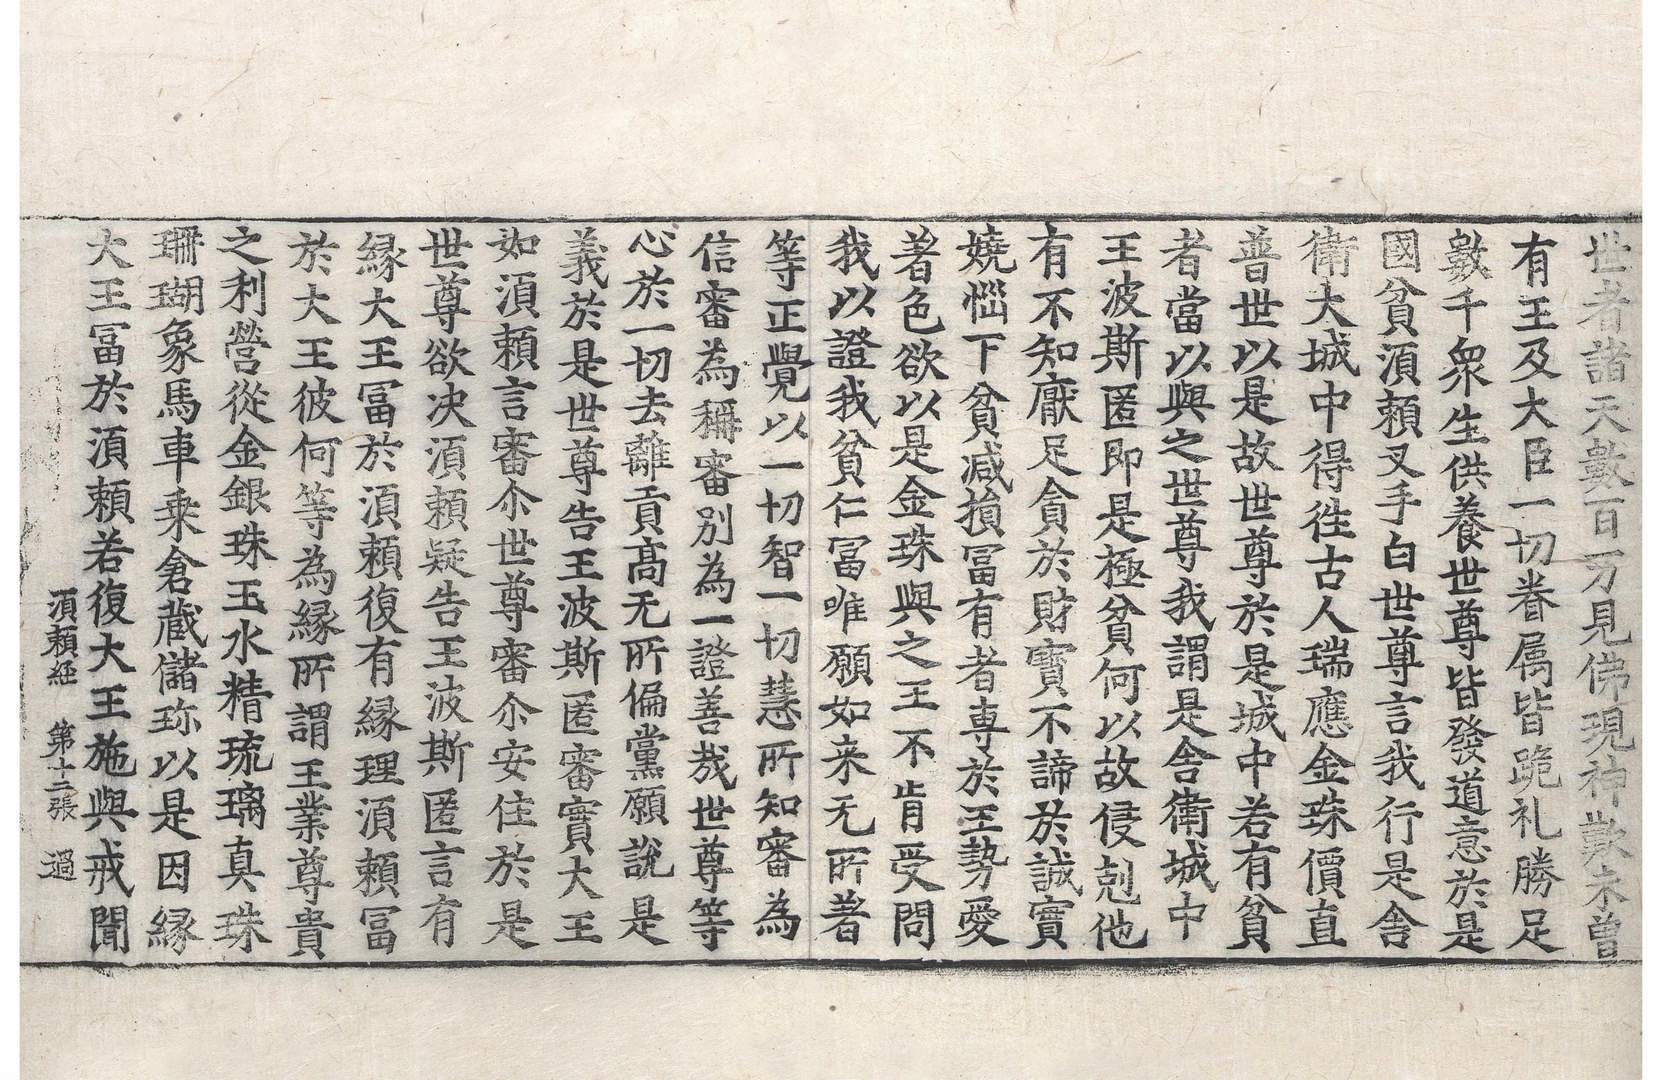 世者諸天數百万見佛現神歎未曾
有王及大臣一切眷属皆跪礼勝足
數千衆生供養世尊皆發道意於是
國貧湏頼叉手白世尊言我行是舎
衛大城中得徃古人瑞應金珠價直
普世以是故世尊於是城中若有貧
者當以與之世尊我謂是舎衛城中
王波斯匿即是極貧何以故侵剋他
有不知厭足貪於財寶不諦於誠實
嬈惱下貧减損冨有者専於王勢愛
著色欲以是金珠與之王不肯受問
我以證我貧仁冨唯願如来无所著
等正覺以一切智一切慧所知審為
信審為稱審别為一證善哉世尊等
心於一切去離貢髙无所偏黨願說是
義於是世尊告王波斯匿審實大王
如湏頼言審尒世尊審尒安住於是
世尊欲决湏頼疑告王波斯匿言有
縁大王冨於湏頼復有縁理湏頼冨
於大王彼何等為縁所謂王業尊貴
之利營從金銀珠玉水精琉璃真珠
珊瑚象馬車乗倉蔵儲珎以是因縁
大王冨於湏頼若復大王施與戒聞
湏頼経 第十二張 過